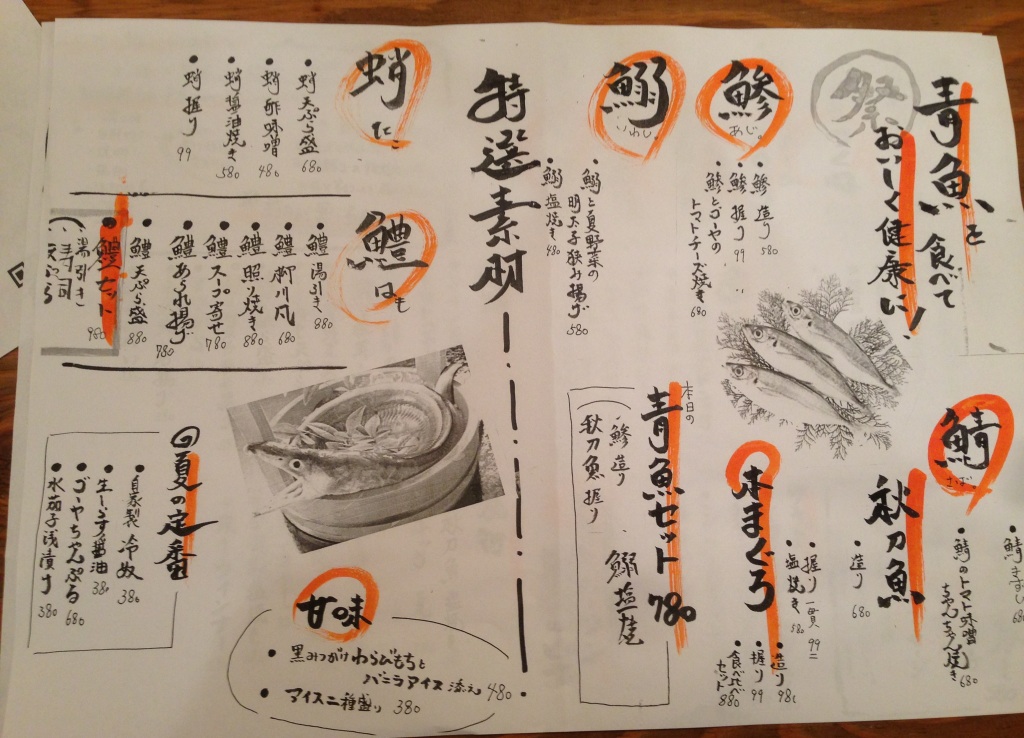 青魚を食べて
おいしく健康に！
祭
鯵
あじ。
・鯵 造り 580
・鯵 握り 99
・鯵とゴーヤの
トマトチーズ焼き 680
鰯
いわし。
・鰯と夏野菜の
明太子挟み揚げ 580
・鰯 塩焼き 480
鯖
さば。
・鯖きずし 680
・鯖のトマト味噌
ちゃんちゃん焼き 680
秋刀魚
・造り 680
・握り 一貫 99
・塩焼き 580
本まぐろ
・造り 980
・握り 99
・食べ比べ
セット 880
本日の
青魚セット 780
鯵 造り
秋刀魚 握り
鰯 塩焼
特選素材
蛸
たこ
・蛸 天ぷら盛 680
・蛸 酢味噌 480
・蛸醤油焼き 580
・蛸 握り 99
鱧
はも
・鱧 湯引き 880
・鱧 柳川風 680
・鱧 照り焼き 880
・鱧 スープ寄せ 780
・鱧 あられ揚げ 780
・鱧 天ぷら盛 880
・鱧セット 980
湯引き
寿司
天ぷら
夏の定番
・自家製 冷奴 380
・生しらす醤油 380
・ゴーヤちゃんぷる 680
・水茄子浅漬け 380
甘味
・黒みつがけわらびもちと
バニラアイス添え 480
・アイス二種盛り 380